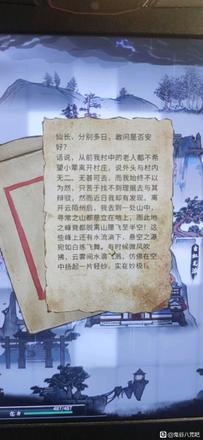 仙长，分别多日，敢问是否安
好？
话说，从前我村中的老人都不希
望小辈离开村庄，说外头与村内
无二，无甚可去，而我始终不以
为然，只苦于找不到理据去与其
辩驳，然而近日我却有发现。离
开云陌州后，我去到一处山中，
寻常之山都是立在地上，而此地
之峰竟都脱离山腰飞至半空！这
些峰上还有水流淌下，悬空之瀑
宛如白练飞舞。有时候微风吹
拂，云雾间水滴飞溅，仿佛在空
中扬起一片轻纱，实在妙极！
487/487
@鬼谷八荒吧